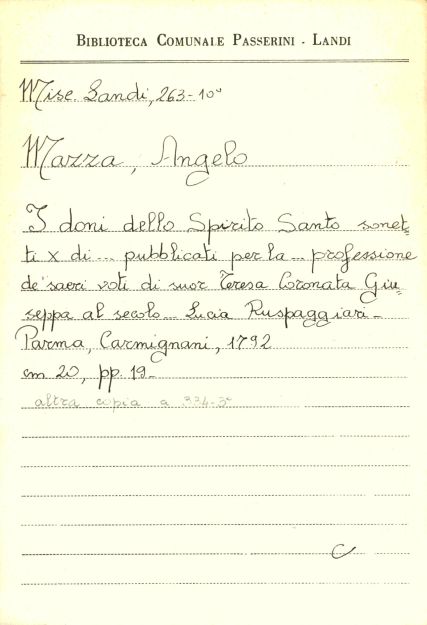 BIBLIOTECA COMUNALE PASSERINI - LANDI
Misc. Landi, 263-10°
Mazza, Angelo
I doni dello Spirito Santo sonet-
ti X di ... pubblicati per la ... professione
de' sacri voti di suor Teresa Coronata Giu-
seppa al secolo ... Lucia Ruspaggiari -
Parma, Carmignani, 1792
cm 20, pp. 19 -
altra copia a 334-3°
C